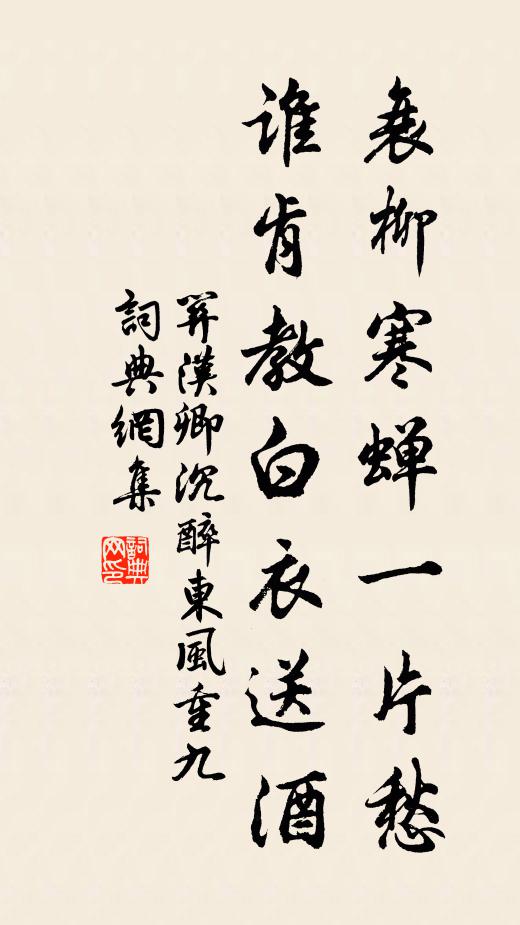 衰柳寒蝉一片愁
谁肯教白衣送酒
关漢卿沉醉東風重九
詞典網集
詞典网印